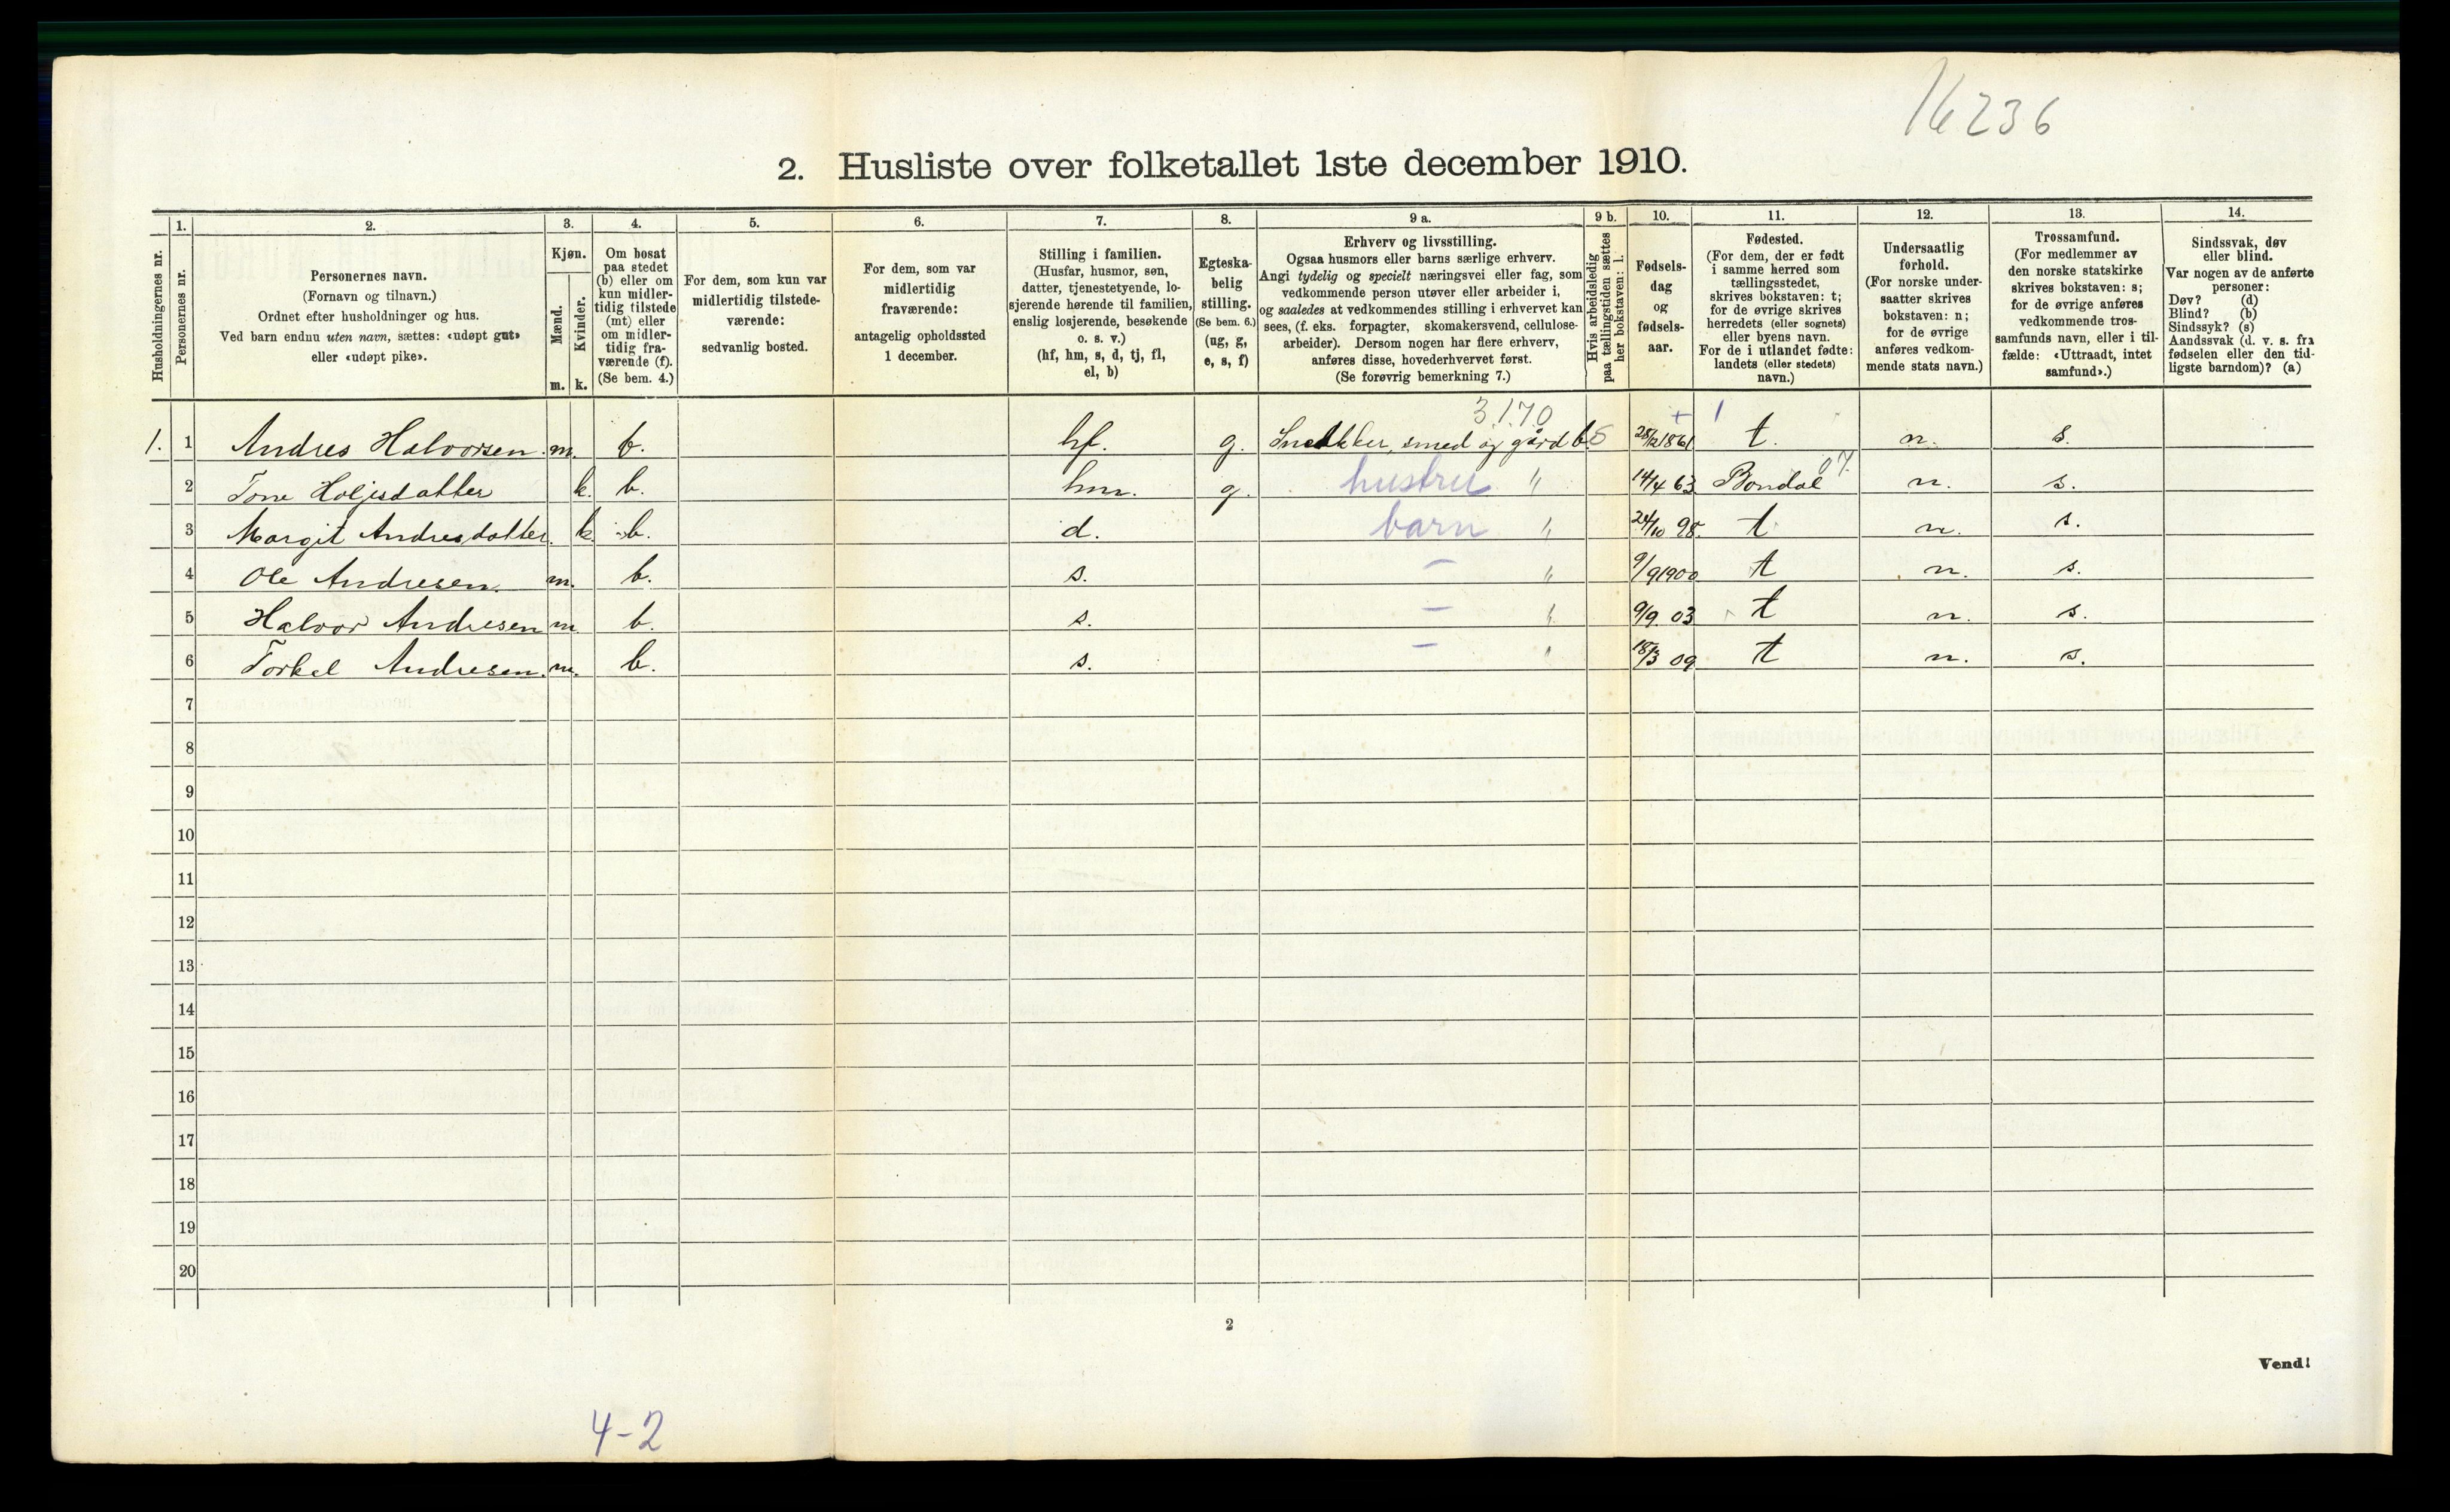 16236
2. Husliste over folketallet 1ste december 1910.
Husholdningernes nr.
1.
Personernes nr.
2.
Personernes navn.
(Fornavn og tilnavn.)
Ordnet efter husholdninger og hus.
Ved barn endnu uten navn, sættes: «udøpt gut»
eller «udøpt pike».
3.
Kjøn.
Mænd.
Kvinder.
m. k.
4.
Om bosat
paa stedet
(b) eller om
kun midler-
tidig tilstede
(mt) eller
om midler-
tidig fra-
værende (f).
(Se bem. 4.)
5.
For dem, som kun var
midlertidig tilstede-
værende:
sedvanlig bosted.
6.
For dem, som var
midlertidig
fraværende:
antagelig opholdssted
1 december.
7.
Stilling i familien.
(Husfar, husmor, søn,
datter, tjenestetyende, lo-
sjerende hørende til familien,
enslig losjerende, besøkende
o. s. v.)
(hf, hm, s, d, tj, fl,
el, b)
8.
Egteska-
belig
stilling.
(Se bem. 6.)
(ug, g,
e, s, f)
9 a.
Erhverv og livsstilling.
Ogsaa husmors eller barns særlige erhverv.
Angi tydelig og specielt næringsvei eller fag, som
vedkommende person utøver eller arbeider i,
og saaledes at vedkommendes stilling i erhvervet kan
sees, (f. eks. forpagter, skomakersvend, cellulose-
arbeider). Dersom nogen har flere erhverv,
anføres disse, hovederhvervet først.
(Se forøvrig bemerkning 7.)
9 b.
Hvis arbeidsledig
paa tællingstiden sættes
her bokstaven: l.
10.
Fødsels-
dag
og
fødsels-
aar.
11.
Fødested.
(For dem, der er født
i samme herred som
tællingsstedet,
skrives bokstaven: t;
for de øvrige skrives
herredets (eller sognets)
eller byens navn.
For de i utlandet fødte:
landets (eller stedets)
navn.)
12.
Undersaatlig
forhold.
(For norske under-
saatter skrives
bokstaven: n;
for de øvrige
anføres vedkom-
mende stats navn.)
13.
Trossamfund.
(For medlemmer av
den norske statskirke
skrives bokstaven: s;
for de øvrige anføres
vedkommende tros-
samfunds navn, eller i til-
fælde: «Uttraadt, intet
samfund».)
14.
Sindssvak, døv
eller blind.
Var nogen av de anførte
personer:
Døv? (d)
Blind? (b)
Sindssyk? (s)
Aandssvak (d. v. s. fra
fødselen eller den tid-
ligste barndom)? (a)
3.1.70 + 1
1. 1 Andres Halvorsen. m. b. hf. g. Snekker, smed og gård b. 28/12 1861 t. n. s.
07.
2 Tone Holjesdatter k. b. hm. g. hustru " 14/4 63 Bondal n. s.
3 Margit Andresdatter. k. b. d. barn " 24/10 98. t n. s.
4 Ole Andresen. m. b. s. — " 9/9 1900 t n. s.
5 Halvor Andresen m. b. s. — " 9/9. 03 t n. s.
6 Torkel Andresen. m. b. s. — " 18/3 09 t n. s.
7
8
9
10
11
12
13
14
15
16
17
18
19
20
2
Vend!
4-2